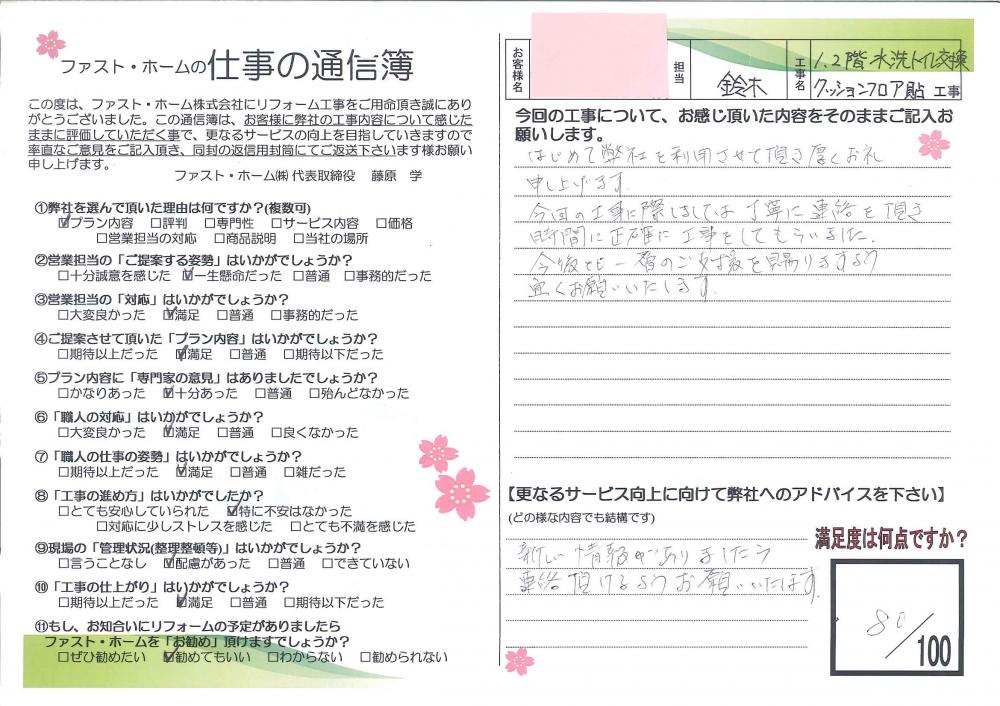 ファスト・ホームの仕事の通信簿
この度は、ファスト・ホーム株式会社にリフォーム工事をご用命頂き誠にあり
がとうございました。この通信簿は、お客様に弊社の工事内容について感じた
ままに評価していただく事で、更なるサービスの向上を目指していきますので
率直なご意見をご記入頂き、同封の返信用封筒にてご返送下さいます様お願い
申し上げます。
ファスト・ホーム㈱ 代表取締役 藤原 学
①弊社を選んで頂いた理由は何ですか？(複数可)
☑プラン内容 □評判 □専門性 □サービス内容 □価格
□営業担当の対応 □商品説明 □当社の場所
②営業担当の「ご提案する姿勢」はいかがでしょうか？
□十分誠意を感じた ☑一生懸命だった □普通 □事務的だった
③営業担当の「対応」はいかがでしょうか？
□大変良かった ☑満足 □普通 □事務的だった
④ご提案させて頂いた「プラン内容」はいかがでしょうか？
□期待以上だった ☑満足 □普通 □期待以下だった
⑤プラン内容に「専門家の意見」はありましたでしょうか？
□かなりあった ☑十分あった □普通 □殆んどなかった
⑥「職人の対応」はいかがでしょうか？
□大変良かった ☑満足 □普通 □良くなかった
⑦「職人の仕事の姿勢」はいかがでしょうか？
□期待以上だった ☑満足 □普通 □雑だった
⑧「工事の進め方」はいかがでしたか？
□とても安心していられた ☑特に不安はなかった
□対応に少しストレスを感じた □とても不満を感じた
⑨現場の「管理状況(整理整頓等)」はいかがでしょうか？
□言うことなし ☑配慮があった □普通 □できていない
⑩「工事の仕上がり」はいかがでしょうか？
□期待以上だった ☑満足 □普通 □期待以下だった
⑪もし、お知合いにリフォームの予定がありましたら
ファスト・ホームを「お勧め」頂けますでしょうか？
□ぜひ勧めたい ☑勧めてもいい □わからない □勧められない
お客様名
担当 鈴木
工事名 1、2階水洗トイレ交換
クッションフロア貼 工事
今回の工事について、お感じ頂いた内容をそのままご記入お
願いします。
はじめて弊社を利用させて頂き厚くお礼
申し上げます
今回の工事に際しましては丁寧に連絡を頂き
時間に正確に工事をしてもらいました.
今後とも一層のご対応を賜りますよう
宜くお願いいたします.
【更なるサービス向上に向けて弊社へのアドバイスを下さい】
(どの様な内容でも結構です)
新しい情報がありましたら
連絡頂けるようお願いいたします.
満足度は何点ですか？
80/100